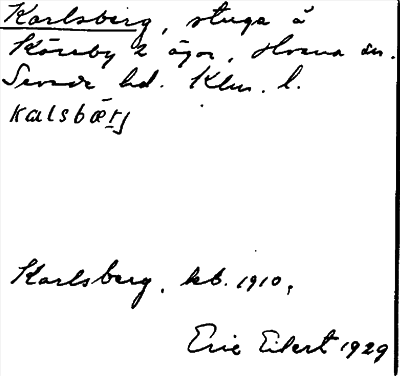 Karlsberg, stuga å
Köreby 2 ägor, Hvena sn.
Sevede hd. Klm. l.
kalsbærj
Karlsberg, kb. 1910,
Eric Eilert 1929